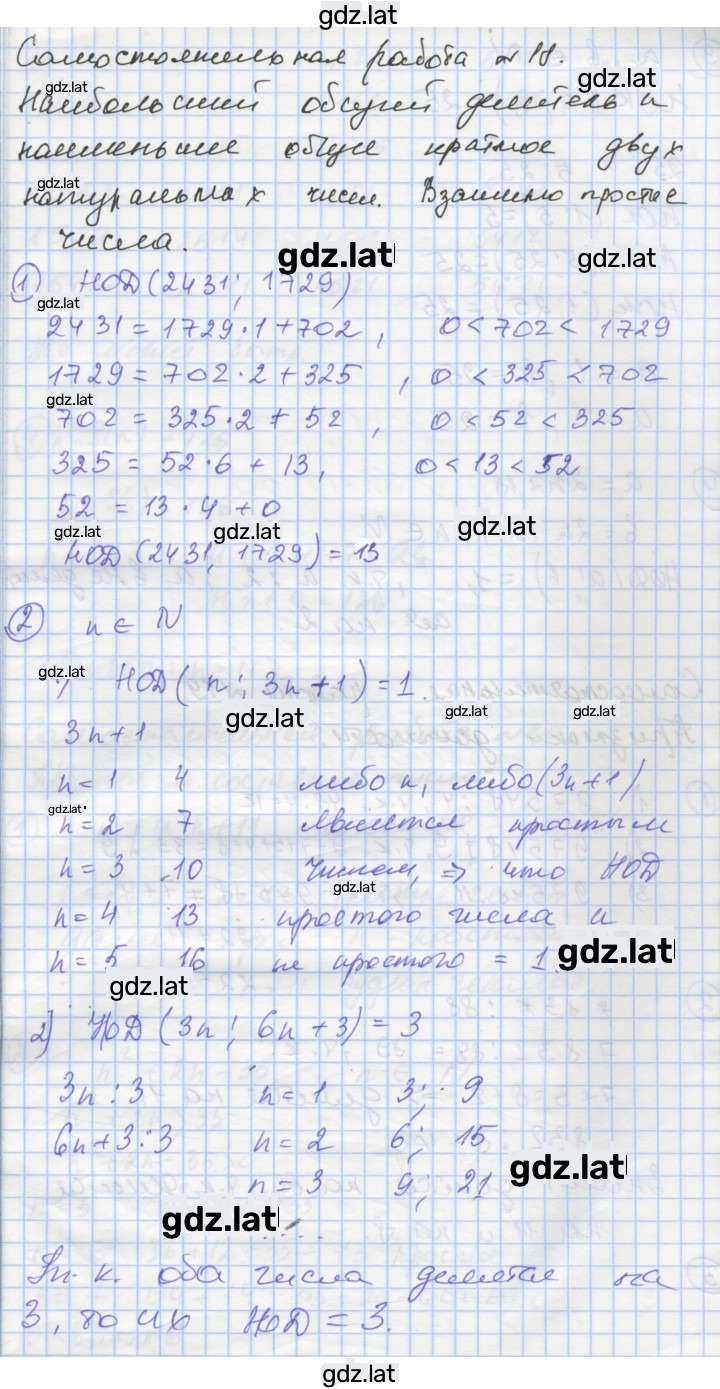 gdz.lat
Самостоятельная работа № 18.
gdz.lat gdz.lat
Наибольший общий делитель и
наименьшее общее кратное двух
gdz.lat
натуральных чисел. Взаимно простые
числа.
gdz.lat gdz.lat
① НОД (2431; 1729)
gdz.lat
2431 = 1729·1+702, 0<702< 1729
1729 = 702·2 + 325, 0 < 325 < 702
gdz.lat
702 = 325·2 + 52, 0 < 52 < 325
325 = 52·6 + 13, 0<13 < 52
52 = 13·4 + 0
gdz.lat gdz.lat gdz.lat
НОД (2431, 1729) = 13
② n ∈ N
gdz.lat
1) НОД (n; 3n+1) = 1.
gdz.lat gdz.lat gdz.lat
3n+1
n=1 4 либо n, либо (3n+1)
gdz.lat
n=2 7 является простым
n=3 10 числом, ⇒ что НОД
gdz.lat
n=4 13 простого числа и
n=5 16 не простого = 1.
gdz.lat
gdz.lat
2) НОД (3n; 6n+3) = 3
3n ⋮ 3 n=1 3; 9
6n+3 ⋮ 3 n=2 6; 15
gdz.lat
n=3 9, 21
gdz.lat ....
Т.к. оба числа делятся на
3, то их НОД = 3.
gdz.lat